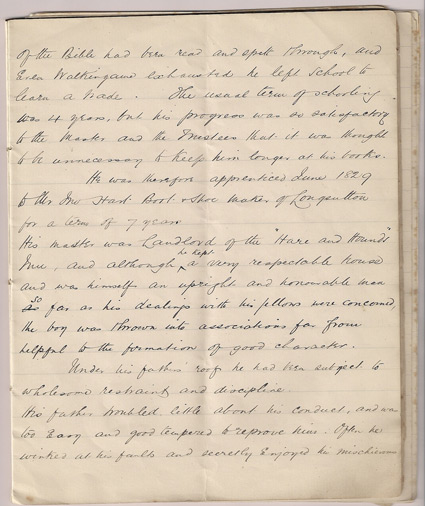 of the Bible had been read and spelt through, and
Even Walkingame Exhausted he left School to
learn a trade. The usual term of schooling
was 4 years, but his progress was so satisfactory
to the Master and the Trustees that it was thought
to be unnecessary to keep him longer at his books.
He was therefore apprenticed June 1829
to Mr Jno Hart Boot & Shoe maker of Longsutton
for a term of 7 years
His master was Landlord of the "Hare and Hounds"
Inn, and although he kept a very respectable house
and was himself an upright and honourable man
so far as his dealings with his fellows were concerned,
the boy was thrown into associations far from
helpful to the formation of good character.
Under his father's roof he had been subject to
wholesome restraint and discipline
His father troubled little about his conduct, and was
too Easy and good tempered to reprove him. Often he
winked at his faults and secretly Enjoyed his mischievous